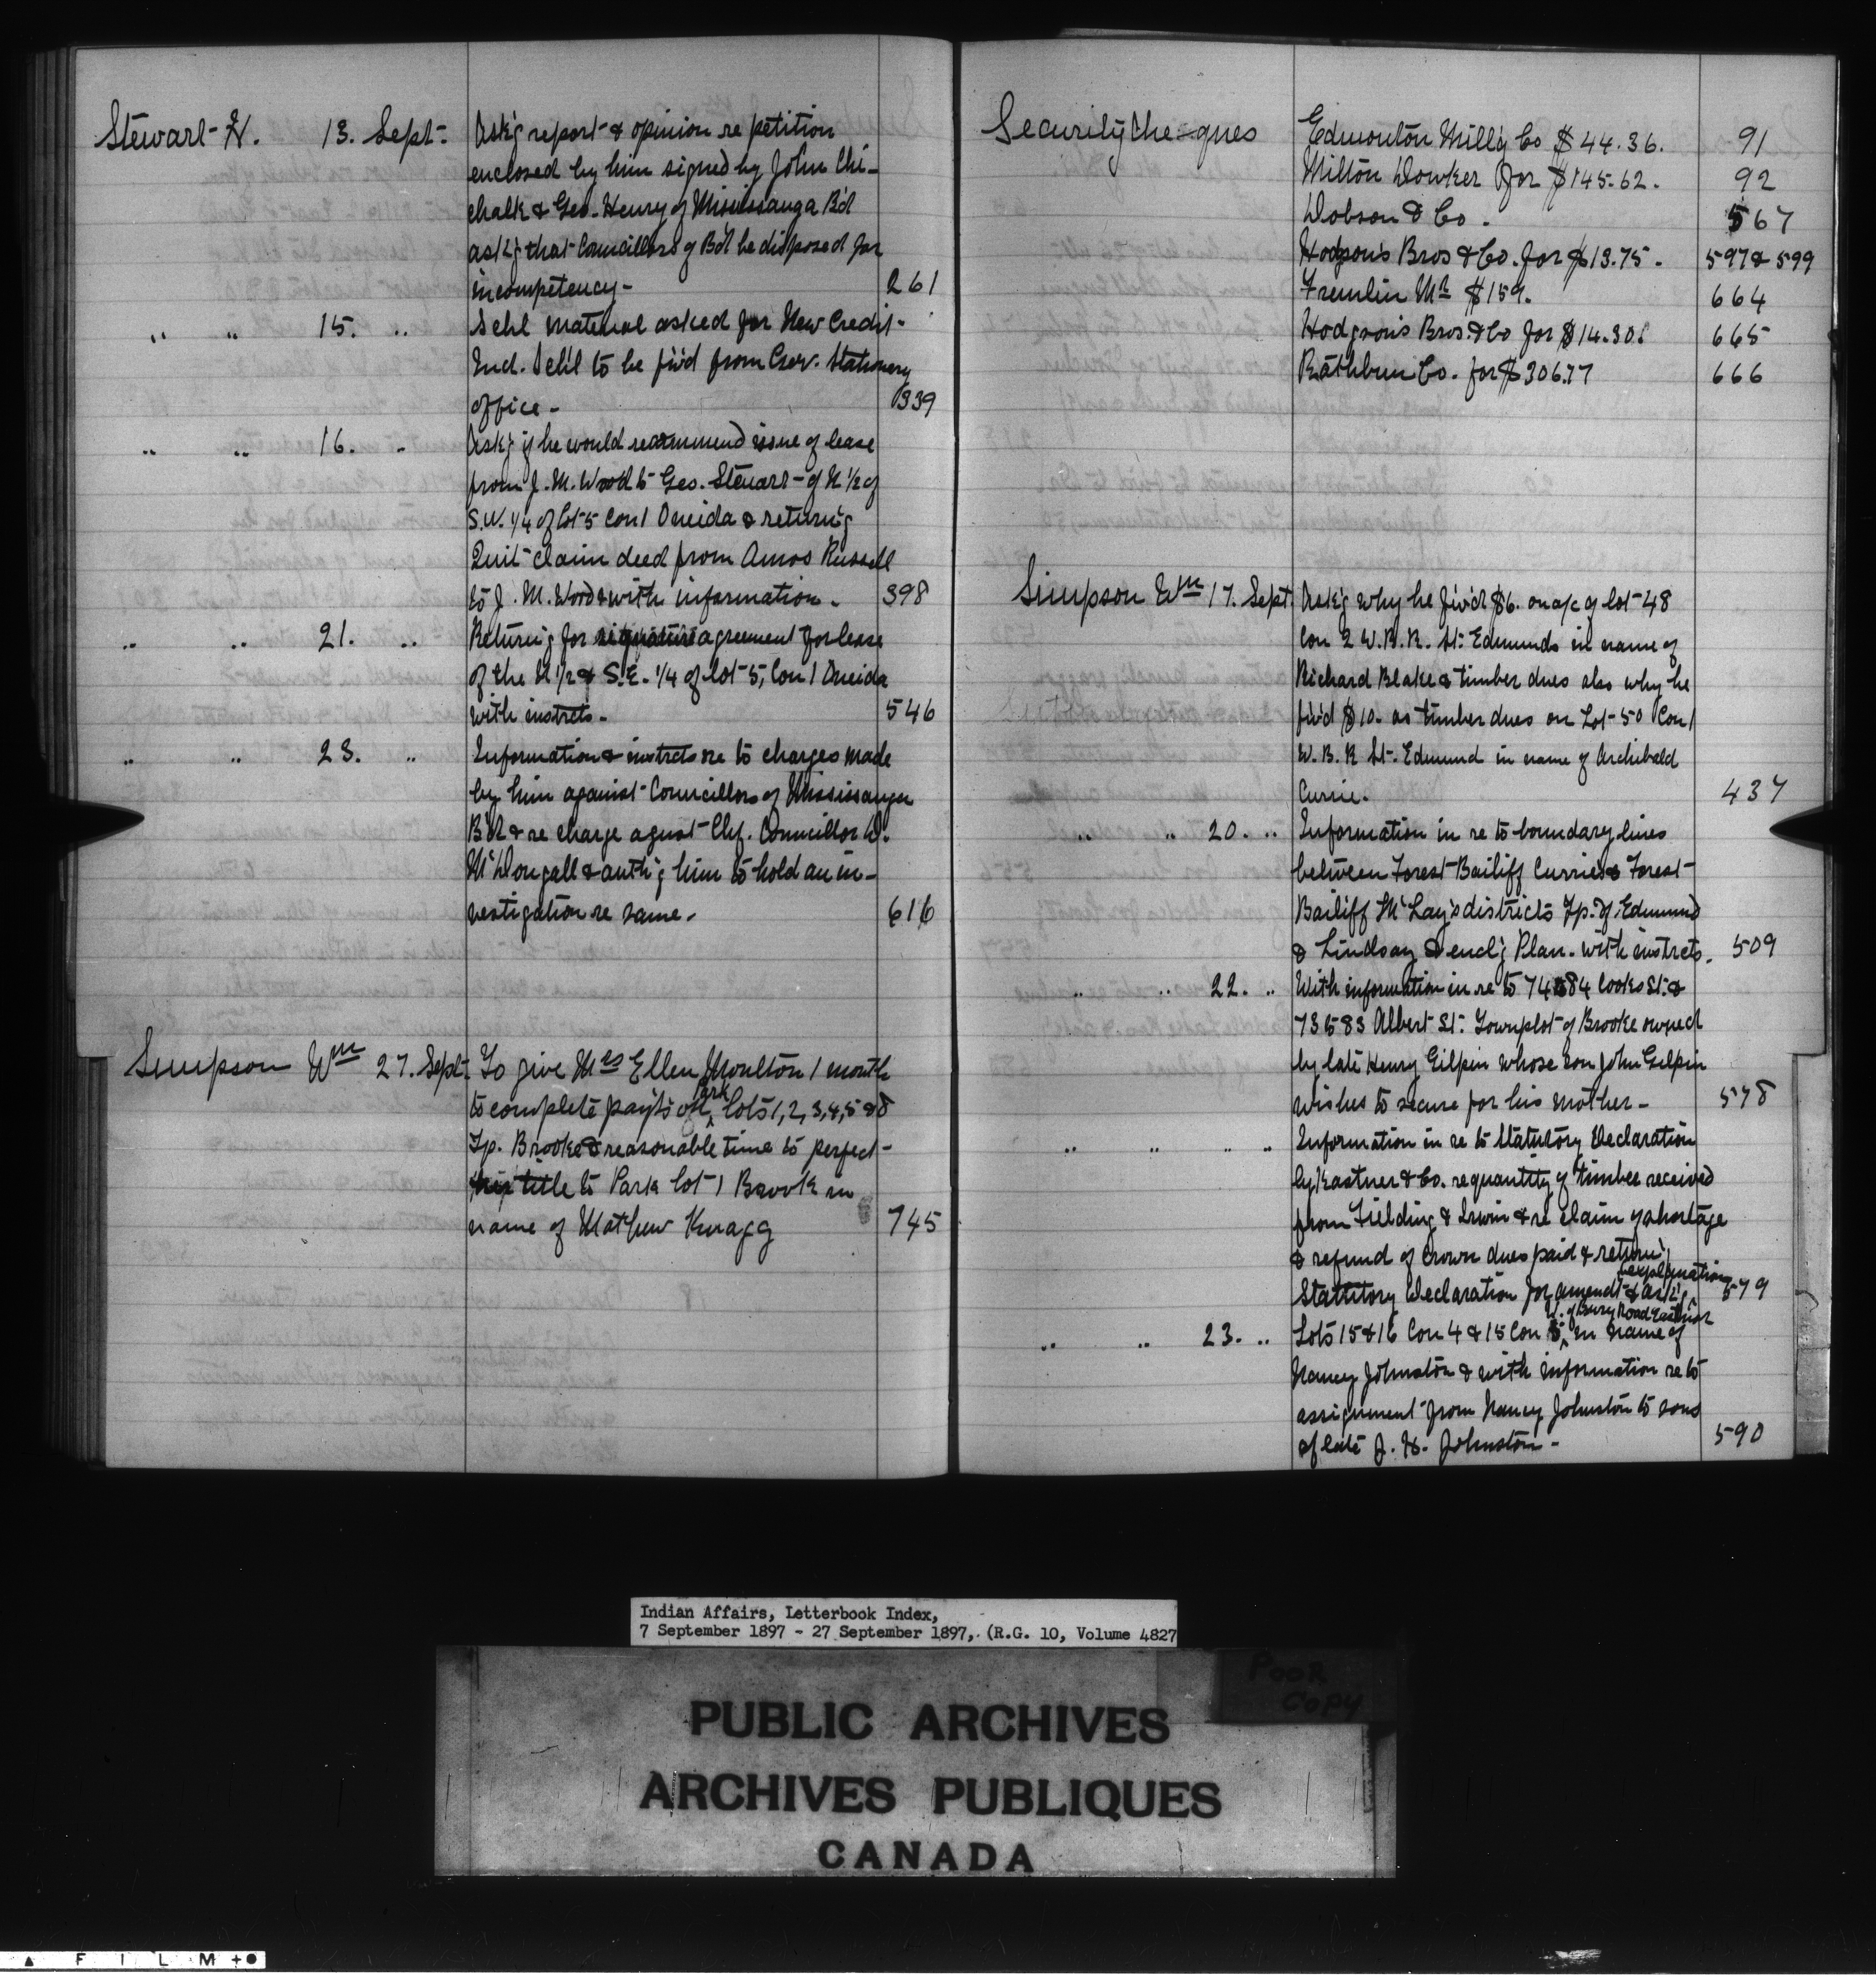 Stewart H. 13. Sept. Ask'g report & opinion re petition
enclosed by him signed by John Chi-
chalk & Geo. Henry of Mississauga B'd
ask'g that Councillors of B'd be disposed for
incompetency - 261
" " 15. " Schl material asked for New Credit
Ind. Sch'l to be fiv'd from Gov. Stationery
office - 339
" " 16. " Ask'g if he would recommend issue of lease
from J. M. Wood to Geo. Stewart - of N 1/2 of
S.W. 1/4 of lot 5 Con 1 Oneida & return'g
Quit claim deed from Amos Russell
to J. M. Wood & with information - 398
" " 21. " Return'g for signature agreement for lease
of the N 1/2 & S.E. 1/4 of lot 5, Con 1 Oneida
with instrcts - 546
" " 23. " Information & instrcts re to charges made
by him against Councillors of Mississauga
B'd & re charge agust Chf. Councillor W.
McDougall & auth'g him to hold an in-
vestigation re same - 616
Simpson Wm 27. Sept. To give Mrs Ellen Moulton 1 month
to complete pay'ts on Park lots 1, 2, 3, 4, 5 & 8
Tp. Brooke & reasonable time to perfect
title to Park lot 1 Brook in
name of Mathew Knagg 745
Security Cheques Edmonton Mill'g Co $44.36. 91
Milton Dowker for $145.62. 92
Dobson & Co. 567
Hodgson's Bros & Co. for $13.75. 597 & 599
Fremlin Mr $159. 664
Hodgson's Bros. & Co for $14.30. 665
Rathbun Co. for $306.77 666
Simpson Wm 17. Sept. Ask'g why he fiv'd $6. on a/c of lot 48
Con 2 W.B.R. St. Edmunds in name of
Richard Blake & timber dues also why he
fiv'd $10. as timber dues on Lot 50 Con 1
W.B.R St. Edmund in name of Archibald
Currie. 437
" " 20. " Information in re to boundary lines
between Forest Bailiff Currie's & Forest
Bailiff McLay's districts Tp. of Edmund
& Lindsay & encl'g Plan. with instrcts. 509
" " 22. " With information in re to 74 & 84 Cooks St. &
73 & 83 Albert St. Townplot of Brooke owned
by late Henry Gilpin whose son John Gilpin
wishes to secure for his mother - 578
" " " " Information in re to Statutory Declaration
by Kastner & Co. re quantity of timber received
from Fielding & Irwin & re claim of shortage
& refund of Crown dues paid & return'g
Statutory Declaration for amendt & ask'g explanation 579
" " 23. " Lots 15 & 16 Con 4 & 15 Con 5, E. of Bury Road Eastnor in name of
Nancy Johnston & with information re to
assignment from Nancy Johnston to sons
of late J. H. Johnston - 590
Indian Affairs, Letterbook Index,
7 September 1897 - 27 September 1897, (R.G. 10, Volume 4827
POOR
COPY
PUBLIC ARCHIVES
ARCHIVES PUBLIQUES
CANADA
FILM